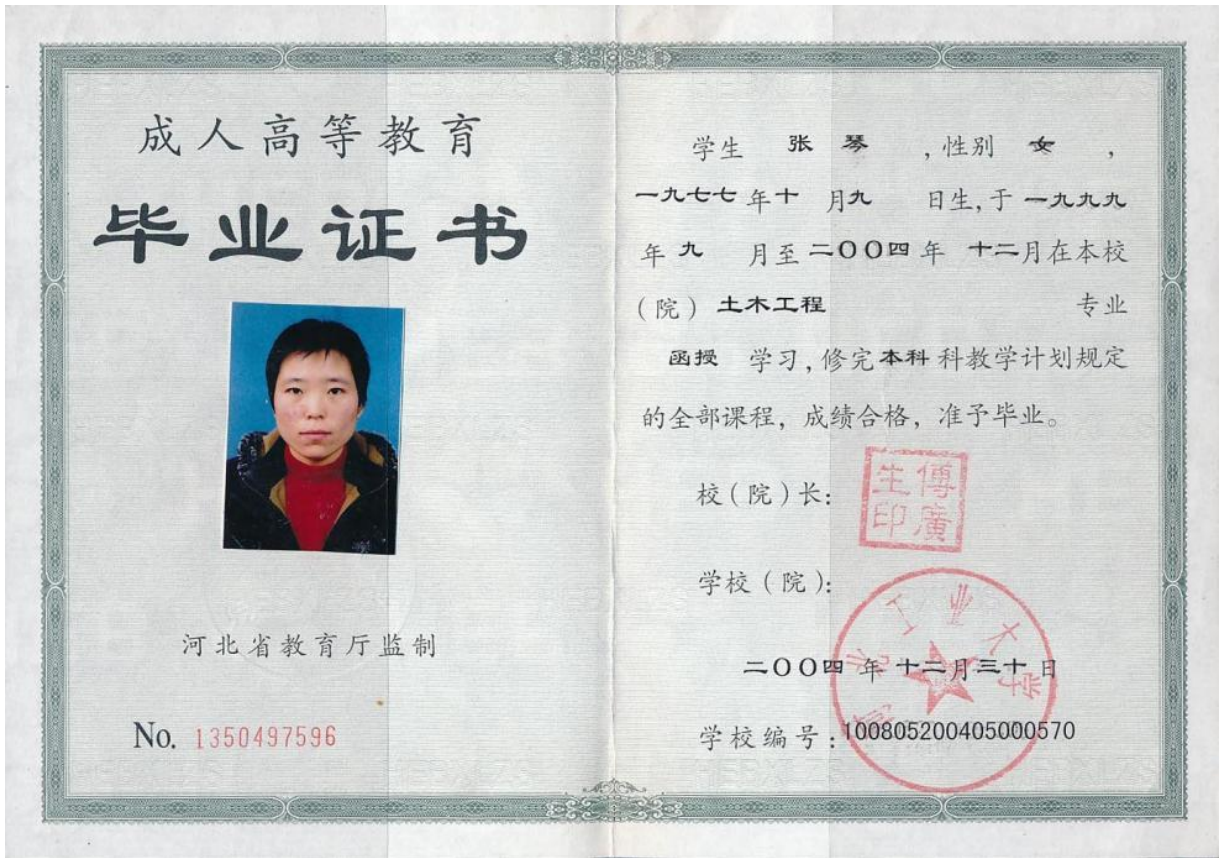 成人高等教育
毕业证书
河北省教育厅监制
No. 1350497596
学生 张琴 ,性别 女 ,
一九七七年十 月九 日生,于一九九九
年九 月至二〇〇四年 十二月在本校
(院)土木工程 专业
函授 学习,修完本科科教学计划规定
的全部课程,成绩合格,准予毕业。
校(院)长:
傅廣生印
学校(院):
河北工业大学
二〇〇四年十二月三十日
学校编号:100805200405000570